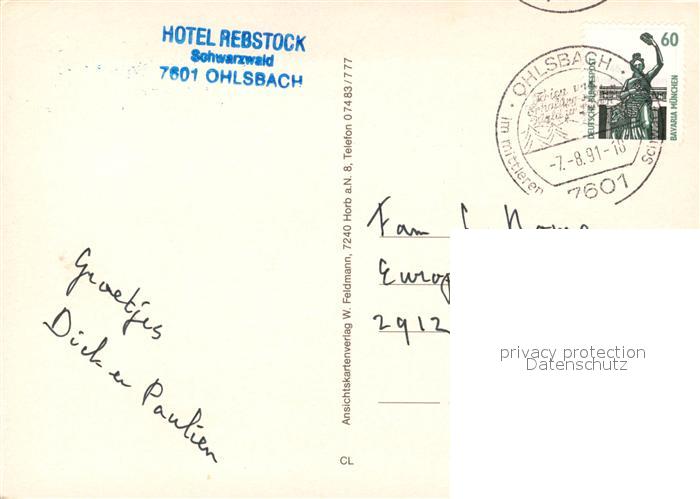 HOTEL REBSTOCK
Schwarzwald
7601 OHLSBACH
Groetjes
Dick en Paulien
Ansichtskartenverlag W. Feldmann, 7240 Horb a.N. 8, Telefon 0 74 83 / 7 77
CL
· OHLSBACH ·
-7.-8.91-18
7601
im mittleren
60
DEUTSCHE BUNDESPOST
BAVARIA MÜNCHEN
Fam
2912
privacy protection
Datenschutz